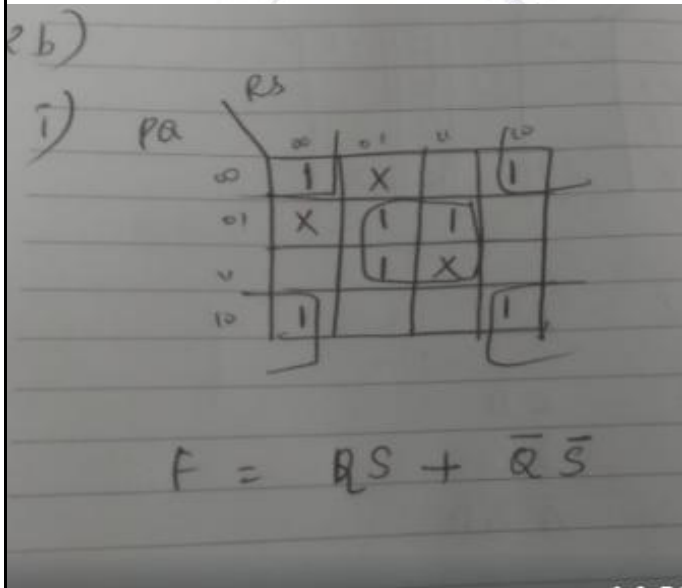 2b)
RS
i) PQ
00 01 11 10
00 1 X 1
01 X 1 1
11 1 X
10 1 1
F = QS + Q̅ S̅